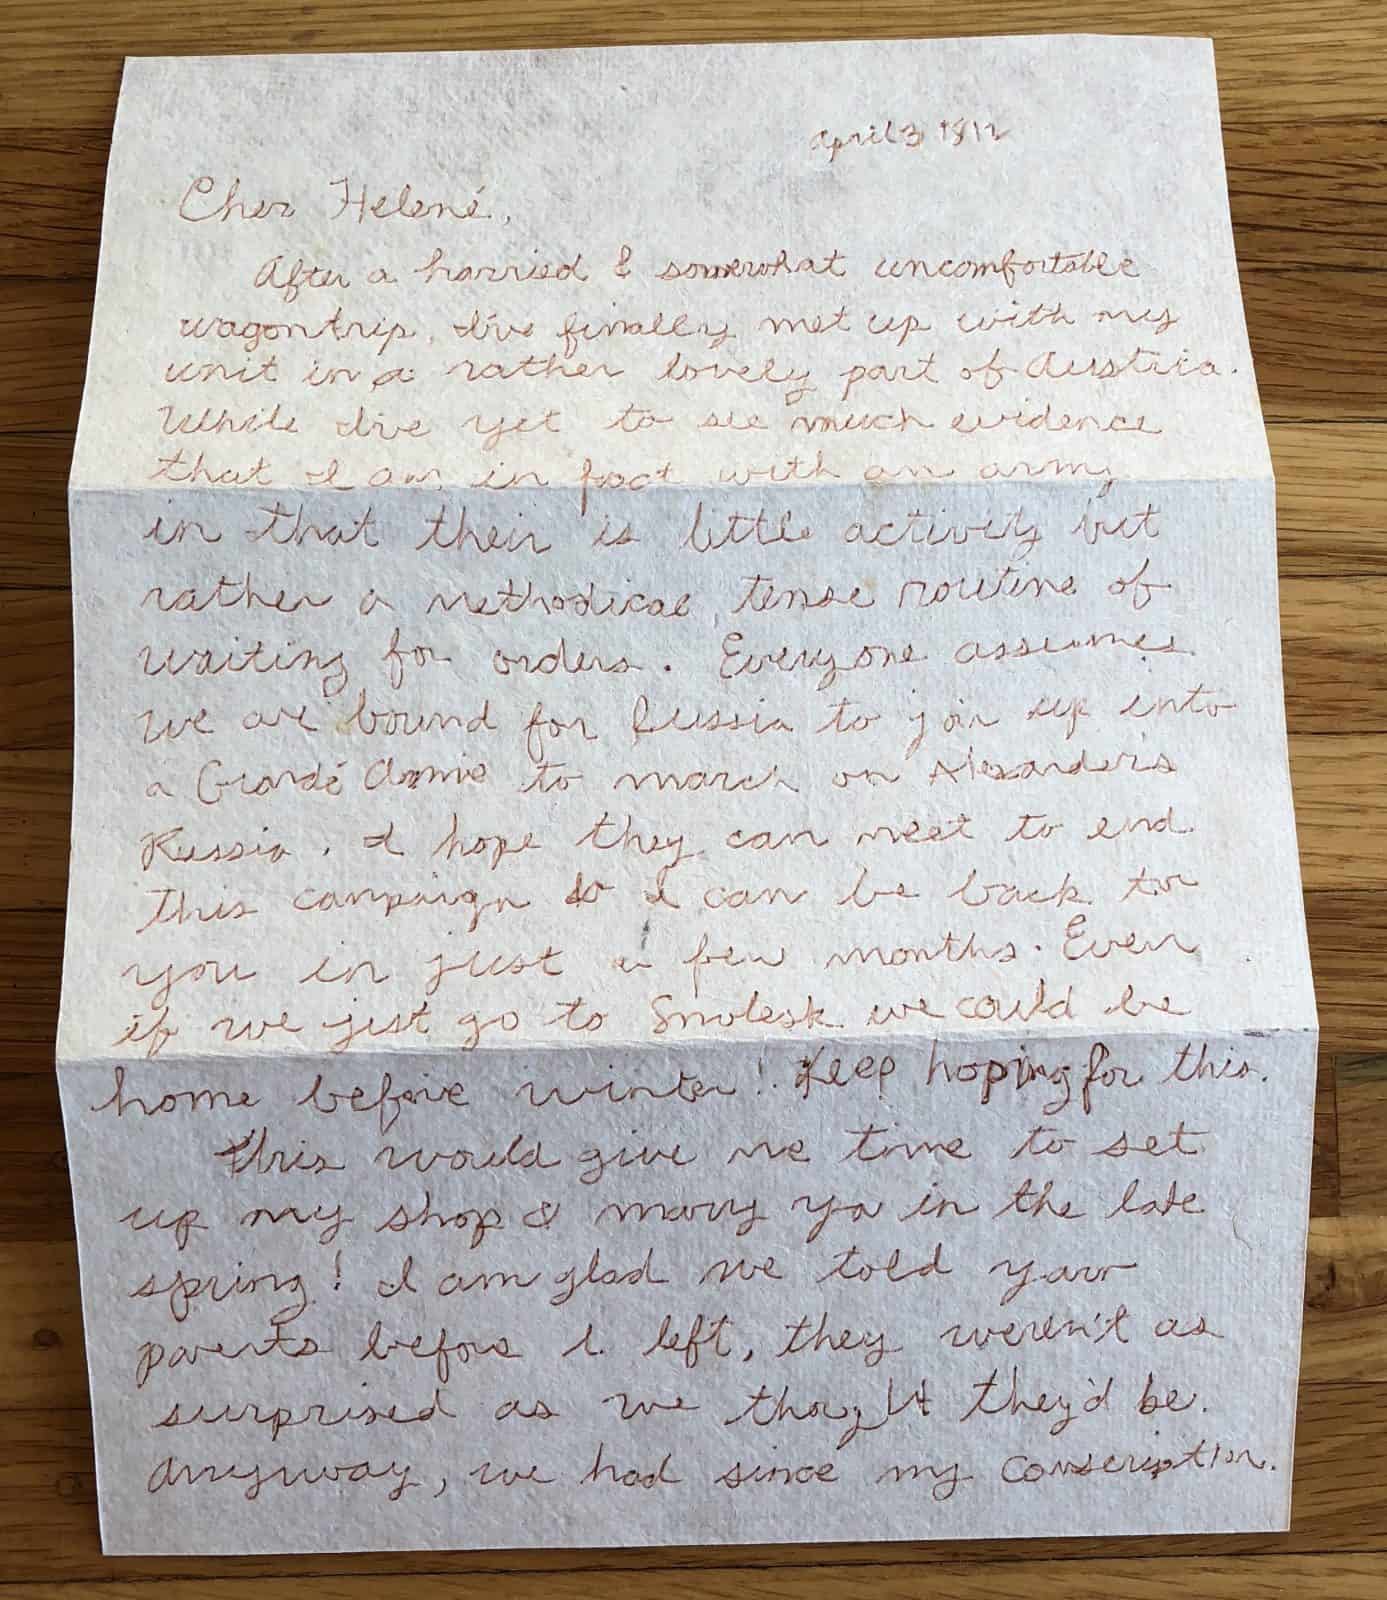 April 3 1812
Cher Helené,
After a harried & somewhat uncomfortable
wagon trip, I've finally met up with my
unit in a rather lovely part of Austria.
While I've yet to see much evidence
that I am in fact with an army
in that their is little activity but
rather a methodical, tense routine of
waiting for orders. Everyone assumes
we are bound for Russia to join up into
a Grandé Armie to march on Alexander's
Russia. I hope they can meet to end
this campaign so I can be back to
you in just a few months. Even
if we just go to Smolesk we could be
home before winter! Keep hoping for this.
This would give me time to set
up my shop & marry you in the late
spring! I am glad we told your
parents before I left, they weren't as
surprised as we thought they'd be.
Anyway, we had since my conscription.